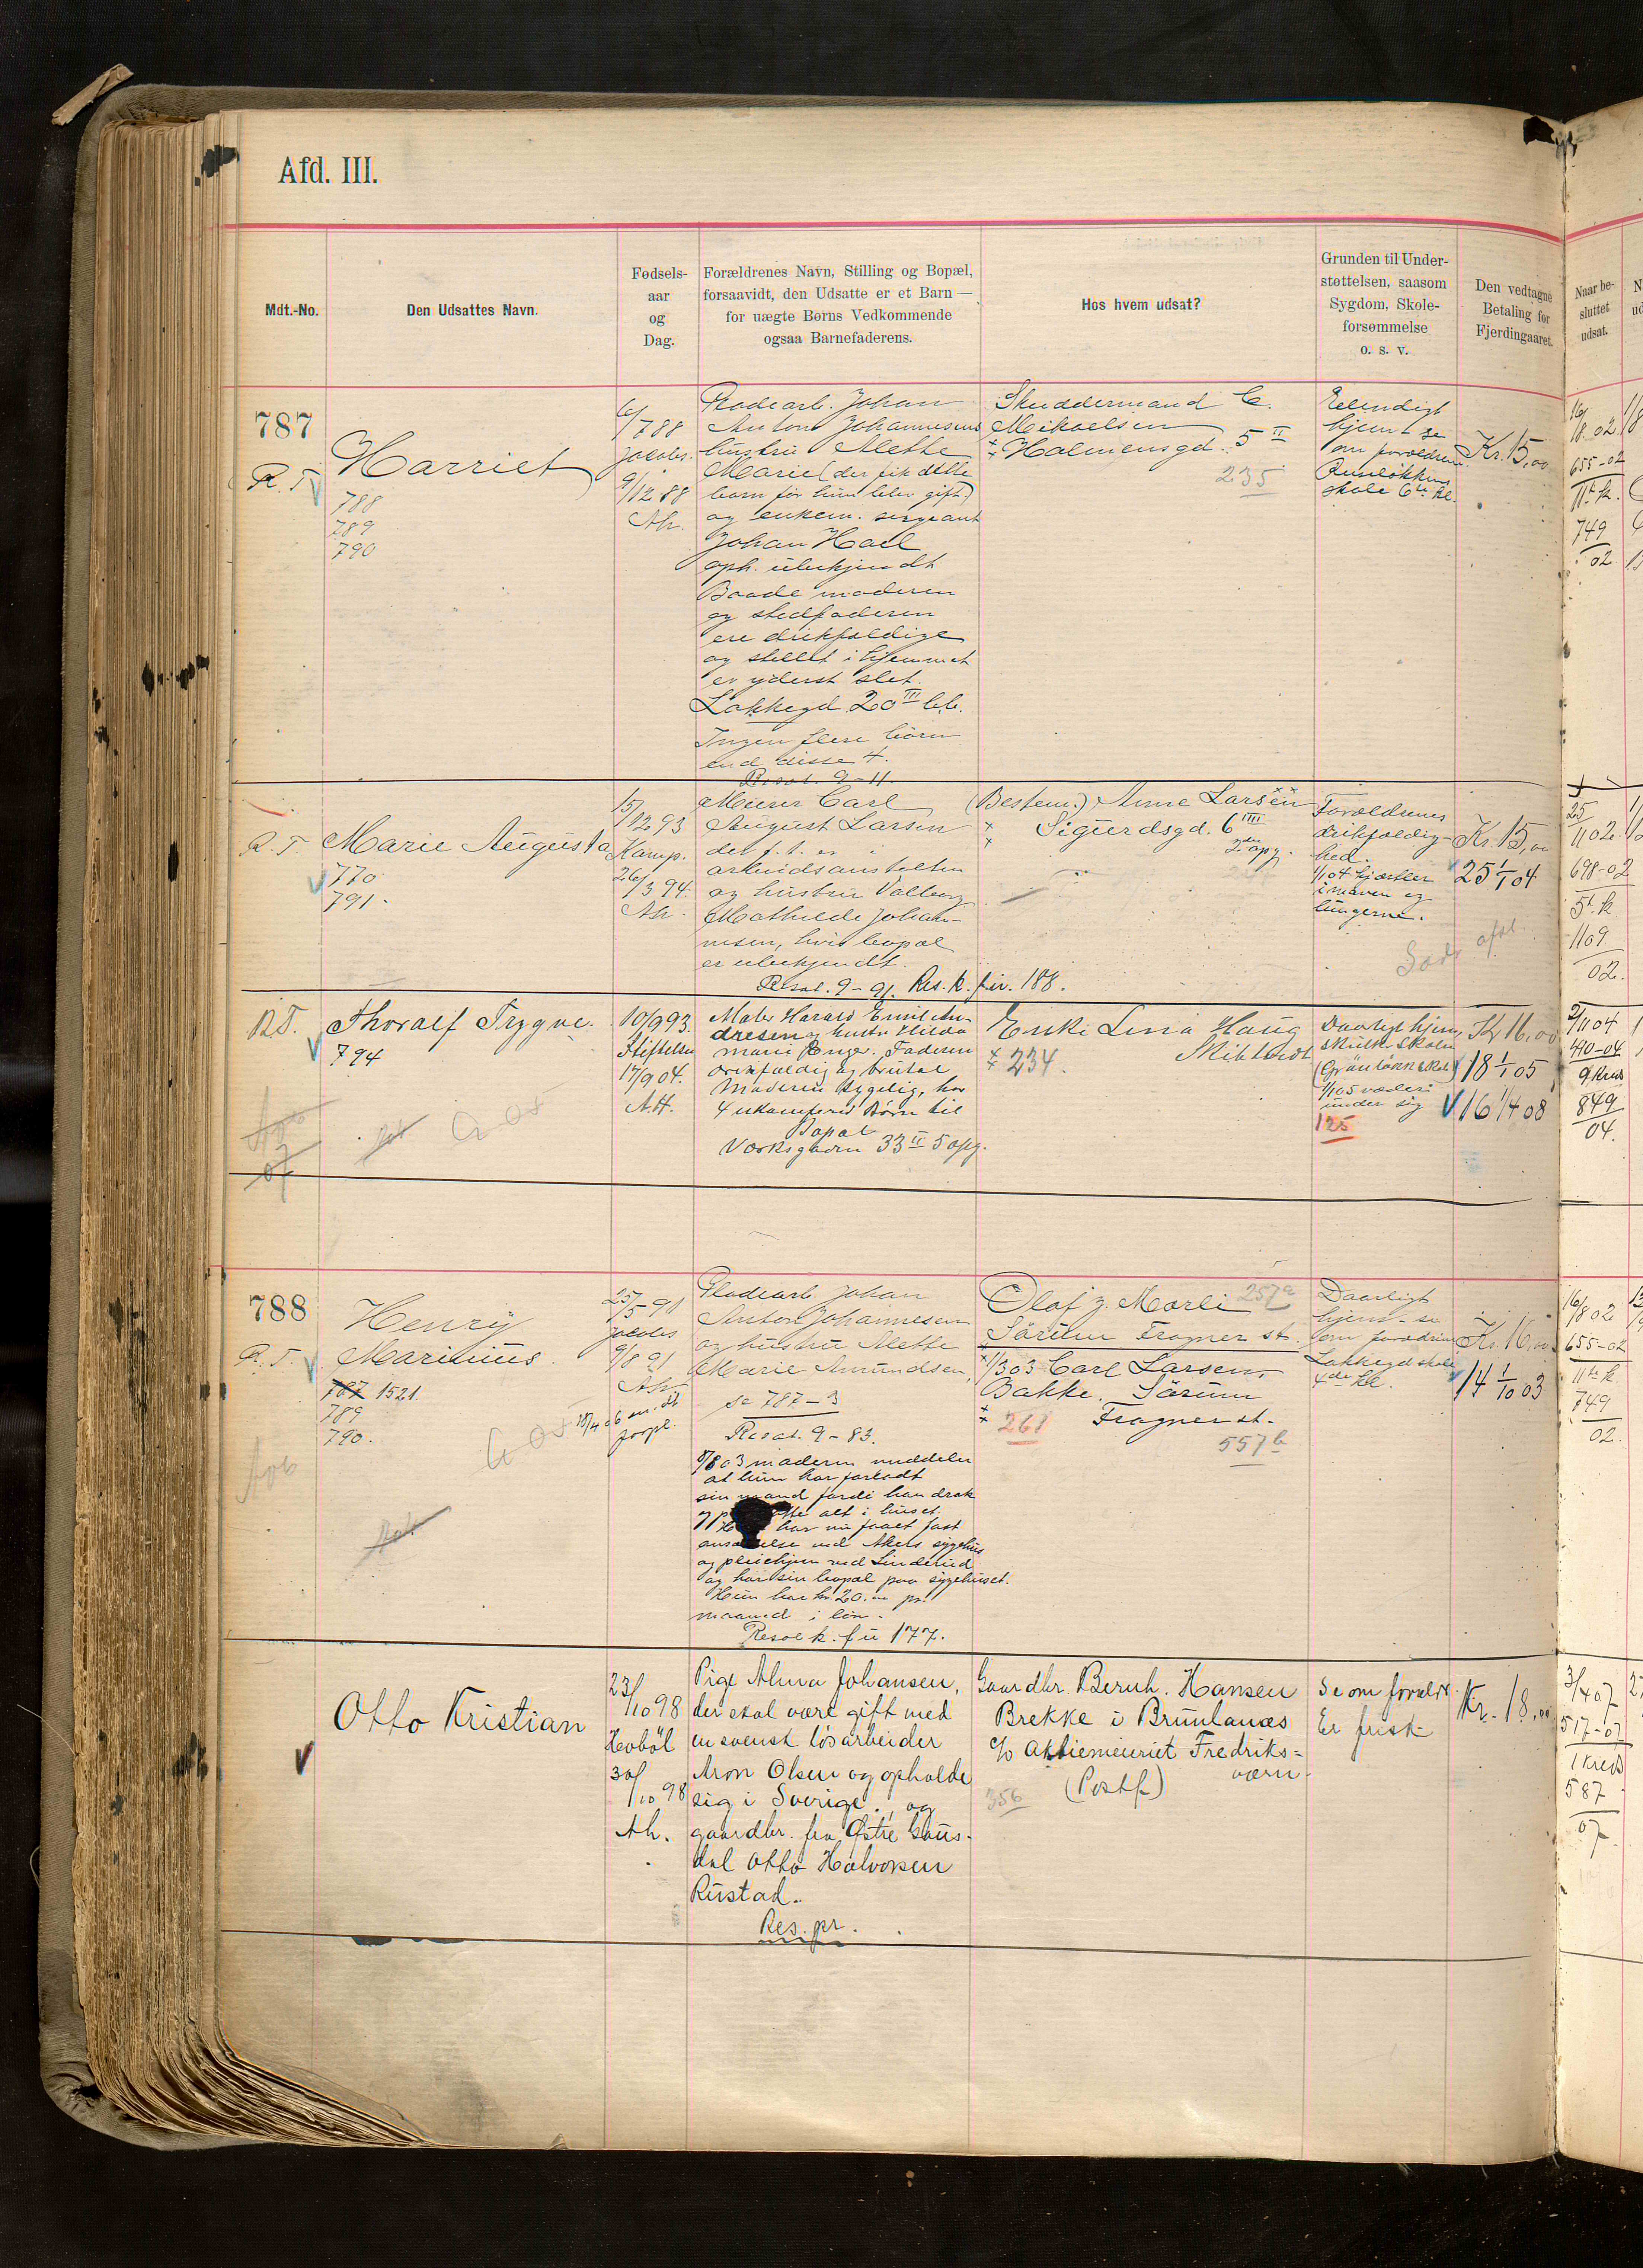 Afd. III.
Mdt.-No.
Den Udsattes Navn.
Fødsels-
aar
og
Dag.
Forældrenes Navn, Stilling og Bopæl,
forsaavidt, den Udsatte er et Barn —
for uægte Børns Vedkommende
ogsaa Barnefaderens.
Hos hvem udsat?
Grunden til Under-
støttelsen, saasom
Sygdom, Skole-
forsømmelse
o. s. v.
Den vedtagne
Betaling for
Fjerdingaaret.
Naar be-
sluttet
udsat.
787
R. T.
Harriet
788
789
790
6/7 88
Jacobs.
9/12 88
Ah.
Pladearb. Johan
Anton Johannesens
hustru Alette
Marie (der fik dette
barn før hun blev gift)
og enkem. sergeant
Johan Hoel
oph. ubekjendt
Baade moderen
og stedfaderen
ere drikfældige
og stellet i hjemmet
er yderst slet.
Lakkegd. 20 III
Ingen flere børn
end disse 4.
Resol. 9-11.
Skuddermand C.
Mikaelsen
Holmensgd. 5 II
235
Elendigt
hjem - se
om forældrene
Ruseløkkens
skole 6te kl.
Kr. 15,00
16/8 02
655-02
11te k.
749
02
R. T.
Marie Augusta
770
791.
15/12 93
Kamp.
26/3 94
Ah.
Murer Carl
August Larsen
der f. t. er i
arbeidsanstalten
og hustru Valborg
Mathilde Johan-
nesen, hvis bopæl
er ubekjendt.
Resol. 9-91. Res. k. fir. 188.
(Bestem.) Anne Larsen
Sigurdsgd. 6 III
2den opg.
Forældrenes
drikfældig-
hed.
1/1 04 kjertler
i maven og
lungerne.
Kr. 15,00
25 1/1 04
25/11 02
698-02
5t. k
1109
02.
R.T.
Thoralf Trygve.
794
10/9 93.
Stiftelsen
17/9 04.
A.H.
Maler Harald Emil An-
dresen og hustr. Hilda
Marie Enger. Faderen
drikfældig og brutal
Moderen sygelig, har
4 ukonfirm. Børn til
Bopæl
Værksgaden 33 II 5 opg.
Enke Lina Haug
Skibtvedt
234.
Daarligt hjem
skulk. skolen
(Grünløkk. skole)
1/1 05 væder
under sig
125
Kr 16,00
18 1/1 05
16 1/4 08
2/11 04
410-04
9 Kreds
849
04.
788
R. T.
Henry
Marinius.
787 1521.
789
790.
25/5 91
Jacobs
9/8 91
Ah
Pladearb. Johan
Anton Johannesen
og hustru Alette
Marie Amundsen,
se 787-3
Resol. 9-83.
moderen meddeler
at hun har forladt
sin mand fordi han drak
alt i huset.
har nu faaet fast
ved Akers sygehus
og pleiehjem ved Linderud
og har sin bopæl paa sygehuset.
Hun har kr. 20.00 pr.
maaned i løn.
Resol k. fir 177.
Olaf J. Marli 257a
Sørum Fragner st.
1/3 03 Carl Larsen,
Bakke. Sørum
261 Fragner st.
557b
Daarligt
hjem - se
om forældrene
Lakkegd. skole
4de kl.
Kr. 16,00
14 1/10 03
16/8 02
655-02
11te k.
749
02.
Otto Kristian
23/10 98
Hobøl
30/10 98
Ah.
Pige Alma Johansen,
der skal være gift med
en svensk løsarbeider
Aron Olsen og opholde
sig i Sverige., og
gaardbr. fra Østre Gaus-
dal Otto Halvorsen
Rustad.
Res. pr.
Gaardbr. Bernh. Hansen
Brekke i Brunlanæs
c/o Aktiemeieriet Fredriks-
værn
(Postk)
356
Se om foræld.
Er frisk
Kr. 18,00
3/4 07
517-07
1 kreds
587
07